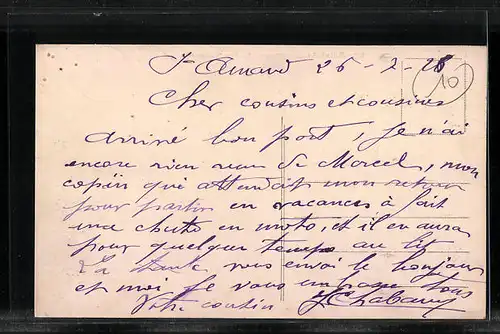 St Amand 26-2-28
10
Cher cousins et cousines
arrivé bon port, je n'ai
encore rien reçu de Marcel, mon
copin qui attendait mon retour
pour partir en vacances à fait
une chute en moto, et il en aura
pour quelque temps au lit
La tante vous envoi le bonjour
et moi je vous embrasse tous
Votre cousin